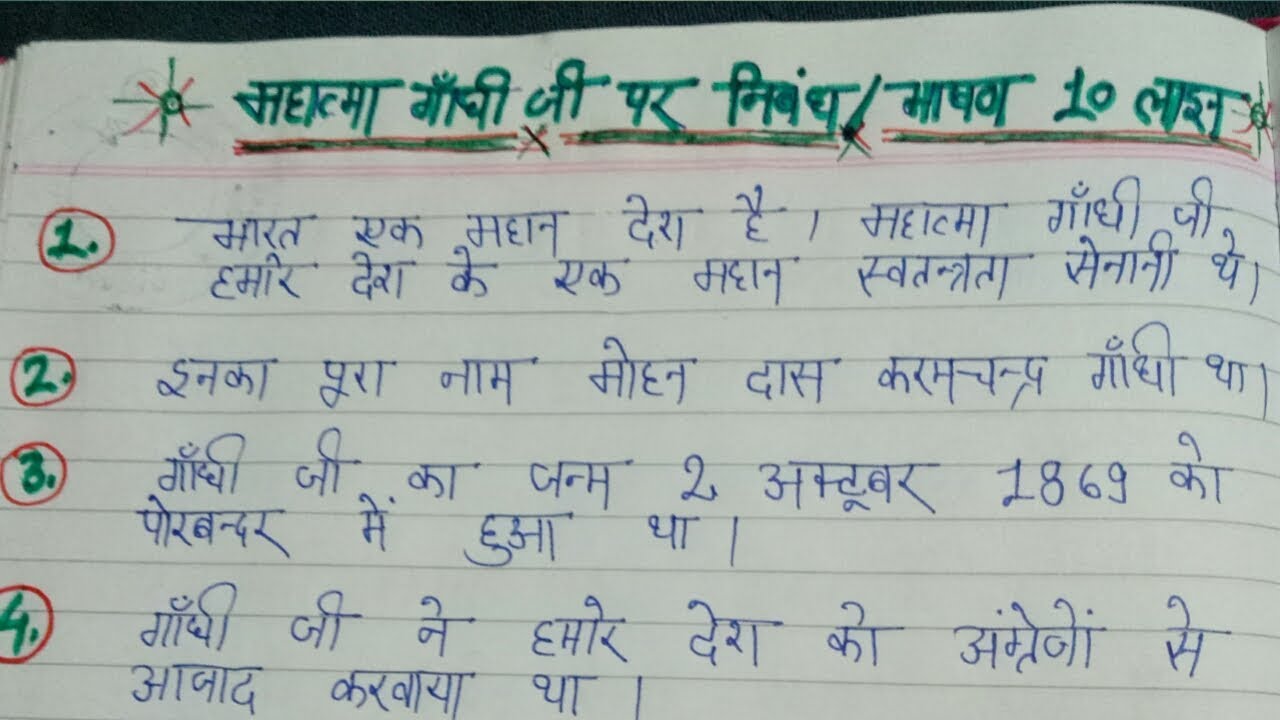 महात्मा गाँधी जी पर निबंध/भाषण 10 लाइन
1. भारत एक महान देश है। महात्मा गाँधी जी
हमारे देश के एक महान स्वतन्त्रता सेनानी थे।
2. इनका पूरा नाम मोहन दास करमचन्द्र गाँधी था।
3. गाँधी जी का जन्म 2 अक्टूबर 1869 को
पोरबन्दर में हुआ था।
4. गाँधी जी ने हमारे देश को अंग्रेजों से
आजाद करवाया था।